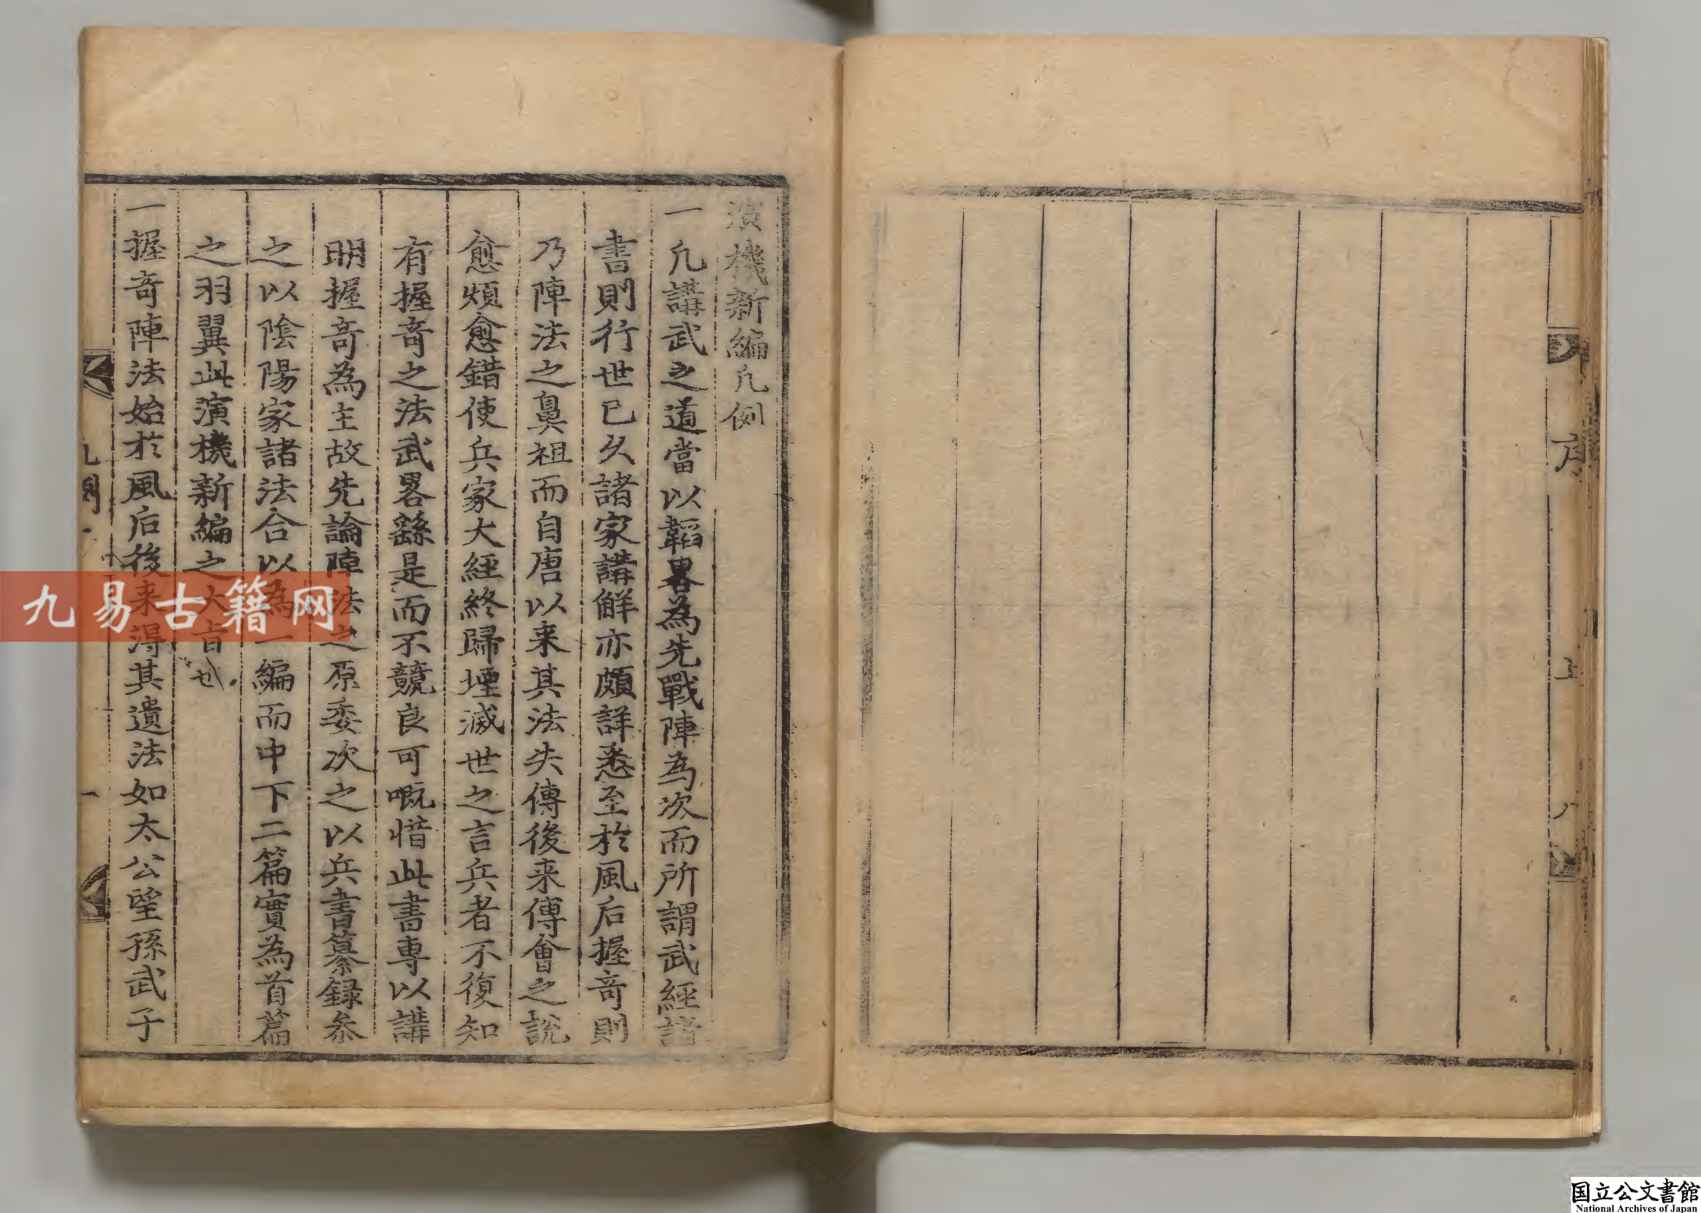 序
演機新編凡例
一凡講武之道當以韜畧為先戰陣為次而所謂武經諸
書則行世已久諸家講觧亦頗詳悉至於風后握奇則
乃陣法之鼻祖而自唐以来其法失傳後来傅會之說
愈煩愈錯使兵家大經終歸堙滅世之言兵者不復知
有握奇之法武畧繇是而不競良可嘅惜此書專以講
明握奇為主故先論陣法之原委次之以兵書纂録叅
之以陰陽家諸法合以為一編而中下二篇實為首篇
之羽翼此演機新編之大旨也
一握奇陣法始於風后後来得其遺法如太公望孫武子
凡例
一
九易古籍网
国立公文書館
National Archives of Japan